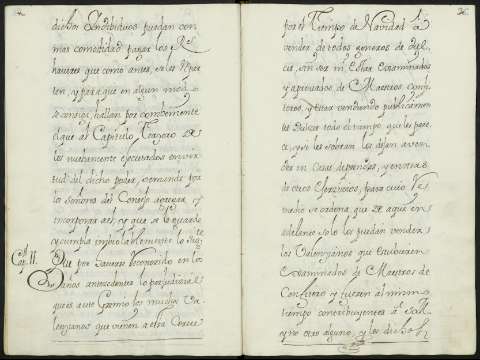 dichos Individuos puedan con
mas comodidad pagar los Rs.
haveres que como antes, se les repar
ten, y para que en algun modo
se consiga, hallan por combeniente
el que al Capitulo Trezavo de
los nuebamente ejecutados en vir
tud del dicho poder, pensando por
los Señores del Consejo aprovar, y
incorporar asi, y que se le guarde
y cumpla imbiolablemente lo sigte.
Capl. 11. Que por haverse reconocido en los
años antecedentes lo perjudicial
que es a este Gremio los muchos Va
lenzianos que vienen a esta Corte
36.
por el Tiempo de Navidad à
vender de todos generos de dul
ces, sin ser ni estar examinados
y aprovados de Maestros Confi
teros, y estar vendiendo publicamen
te Dulzes todo el tiempo que les pare
ce, y si les sobran los dejan a ven
der en Casas de paisanos, y en otras
de otros Exerzicios, para cuio Re
medio se ordena que de aqui en
adelante solo los puedan vender
los Valenzianos que estubieren
examinados de Maestros de
Confitero y fueren al mismo
tiempo contribuyentes à S. M.
y no otro alguno, y los dichos